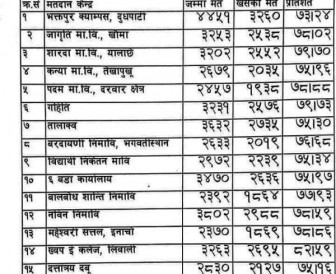 क्र.सं मतदान केन्द्र जम्मा मत खसेको मत प्रतिशत
१ भक्तपुर क्याम्पस, दुधपाटी ४४५१ ३२६० ७३।२४
२ जागृति मा.वि., खौमा ३२५३ २५३८ ७८।०२
३ शारदा मा.वि., यालाछेँ ३२०२ २५५२ ७९।७०
४ कन्या मा.वि., तेखापुखु २६७९ २०३५ ७५।९६
५ पदम मा.वि., दरवार क्षेत्र २४५७ १९३८ ७८।८८
६ गहिति ३२३१ २५७६ ७९।७३
७ तालाक्व ३६३२ २७३५ ७५।३०
८ बरदायणी निमावि, भगवतीस्थान २६३३ २०१९ ७६।६८
९ विद्यार्थी निकेतन मावि २९७२ २२३९ ७५।३४
१० ६ वडा कार्यालय ३४७० २६३६ ७५।९७
११ बालबोध शान्ति निमावि २३९२ १८६४ ७७।९३
१२ नविन निमावि ३८०२ २९८८ ७८।५९
१३ महेश्वरी सत्तल, इनाचो २३७० १८६९ ७८।८६
१४ ख्वप इ कलेज, लिवाली ३२६३ २६९५ ८२।५९
१५ दत्तात्रय दबू २८३० २१२७ ७५।१६